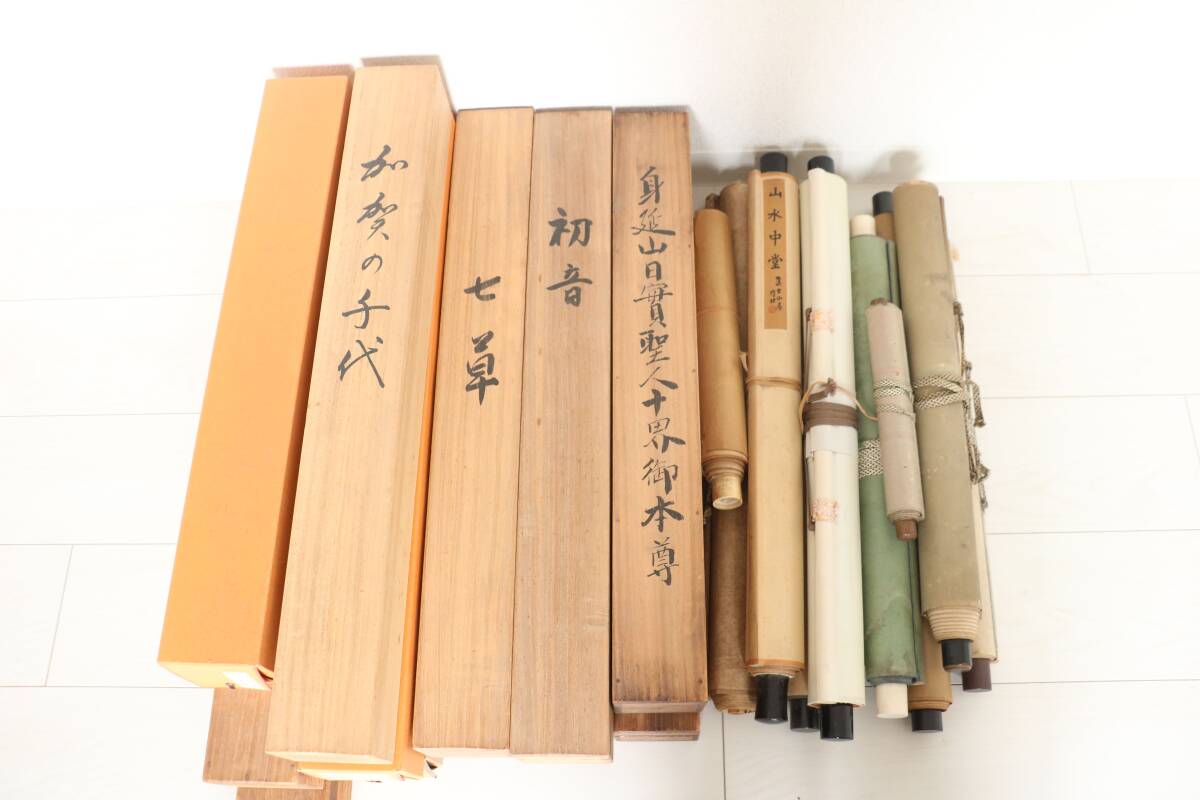 加賀の千代
七草
初音
身延山日實聖人十界御本尊
山水中堂